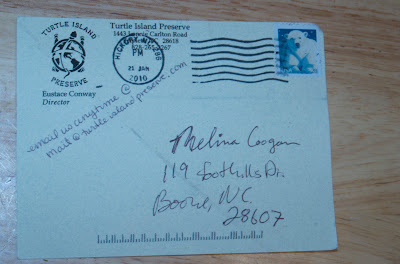 TURTLE ISLAND
PRESERVE
Eustace Conway
Director
Turtle Island Preserve
1443 Lonnie Carlton Road
NC 28618
828-265-2267
HICKORY NC 286
PM
25 JAN
2010
email us anytime @
mail@turtleislandpreserve.com
Melina Coogan
119 foothills Dr.
Boone, NC
28607